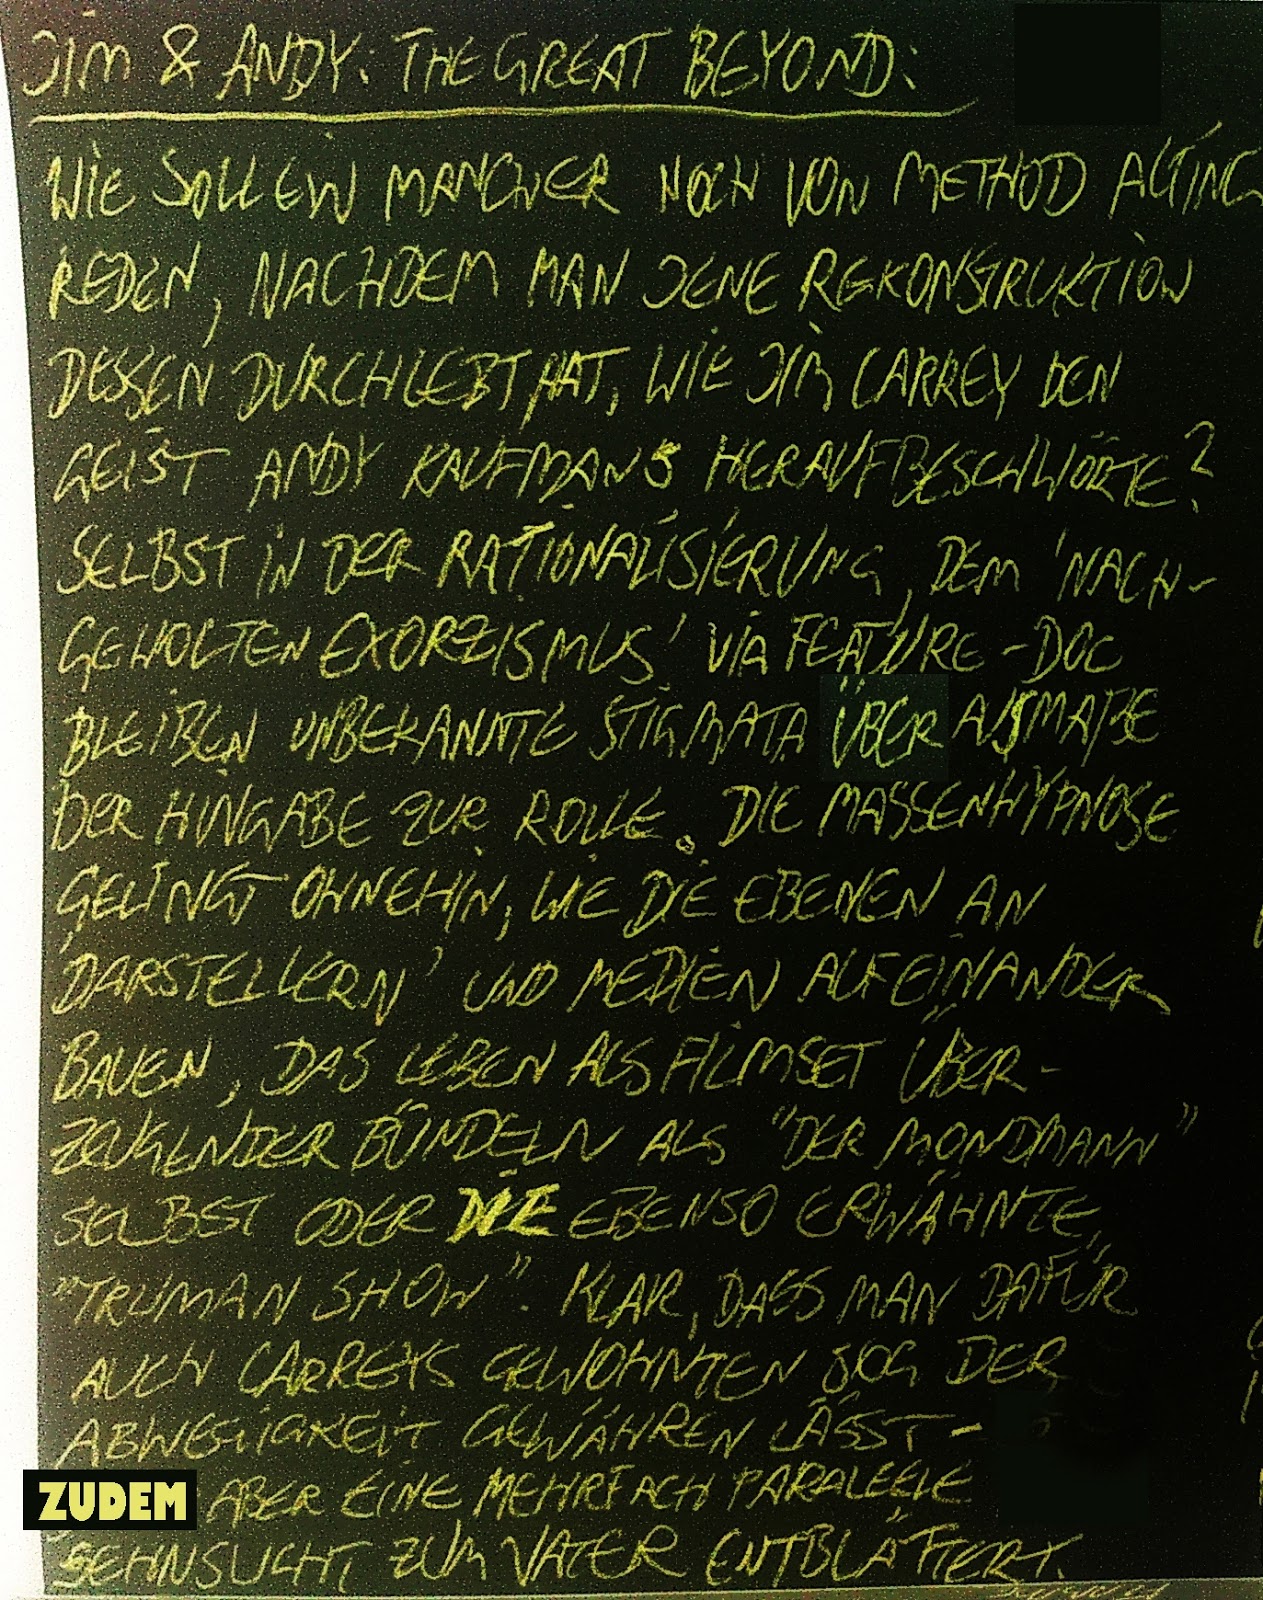 JIM & ANDY: THE GREAT BEYOND:
WIE SOLL EIN MANCHER NOCH VON METHOD ACTING
REDEN, NACHDEM MAN JENE REKONSTRUKTION
DESSEN DURCHLEBT HAT, WIE JIM CARREY DEN
GEIST ANDY KAUFMANS HERAUFBESCHWÖRTE?
SELBST IN DER RATIONALISIERUNG, DEM 'NACH-
GEHOLTEN EXORZISMUS' VIA FEATURE-DOC
BLEIBEN UNBEKANNTE STIGMATA ÜBER AUSMAßE
DER HINGABE ZUR ROLLE. DIE MASSENHYPNOSE
GELINGT OHNEHIN, WIE DIE EBENEN AN
'DARSTELLERN' UND MEDIEN AUFEINANDER
BAUEN, DAS LEBEN ALS FILMSET ÜBER-
ZEUGENDER BÜNDELN ALS "DER MONDMANN"
SELBST ODER DIE EBENSO ERWÄHNTE,
"TRUMAN SHOW". KLAR, DASS MAN DAFÜR
AUCH CARREYS GEWOHNTEN SOG DER
ABWEGIGKEIT GEWÄHREN LÄSST -
ZUDEM ABER EINE MEHRFACH PARALELLE
SEHNSUCHT ZUM VATER ENTBLÄTTERT.